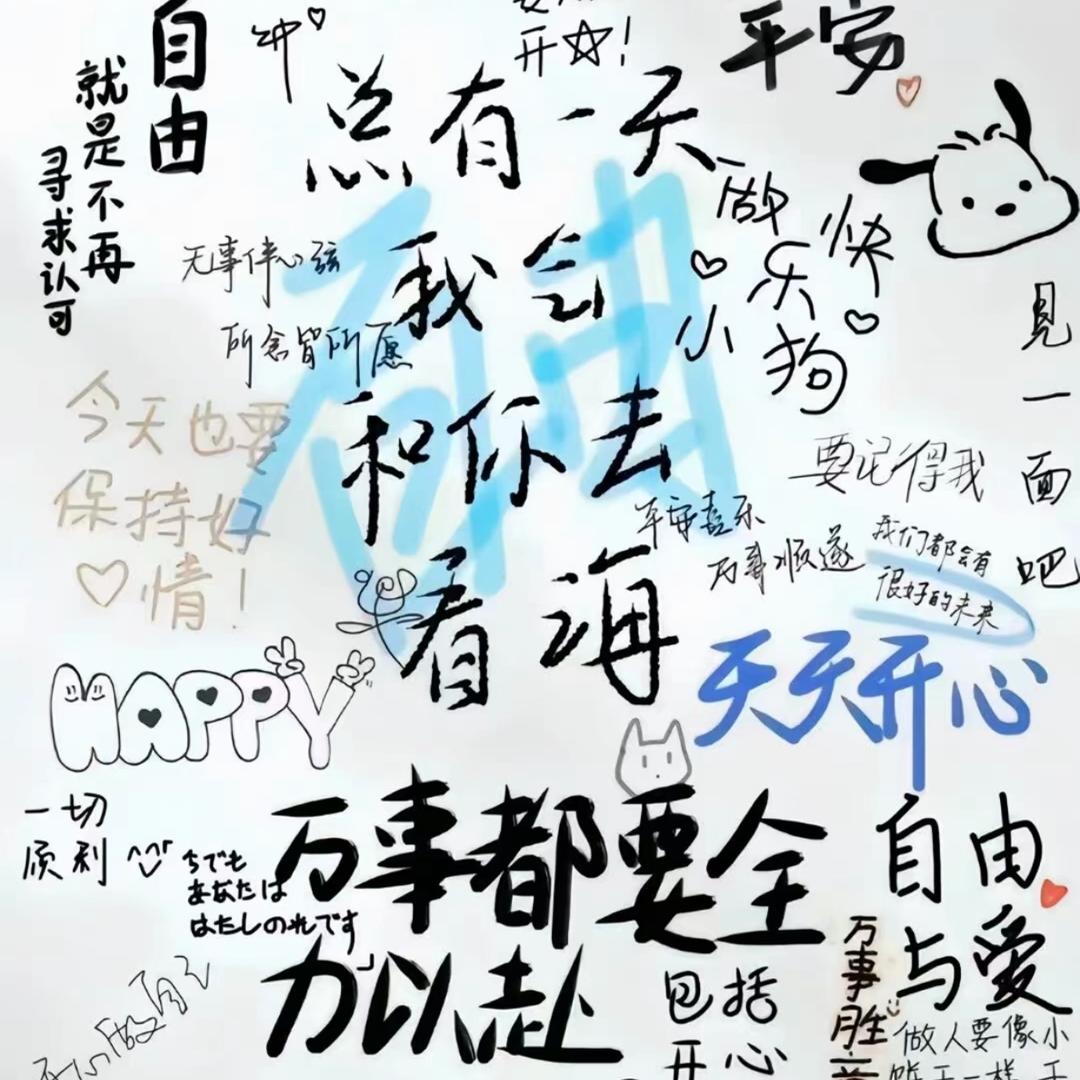 自由
开☆!
平安
就是不再
寻求认可
总有一天
我会
和你去
看海
做
快
乐
小
狗
无事伴心弦
所念皆所愿
自由
见一面吧
今天也要
保持好
♡情!
要记得我
平安喜乐
万事顺遂
我们都会有
很好的未来
HAPPY
天天开心
一切
顺利
ちでも
あなたは
はたしのれです
万事都要全
力以赴
包括
开心
自由
与爱
万事胜
做人要像小